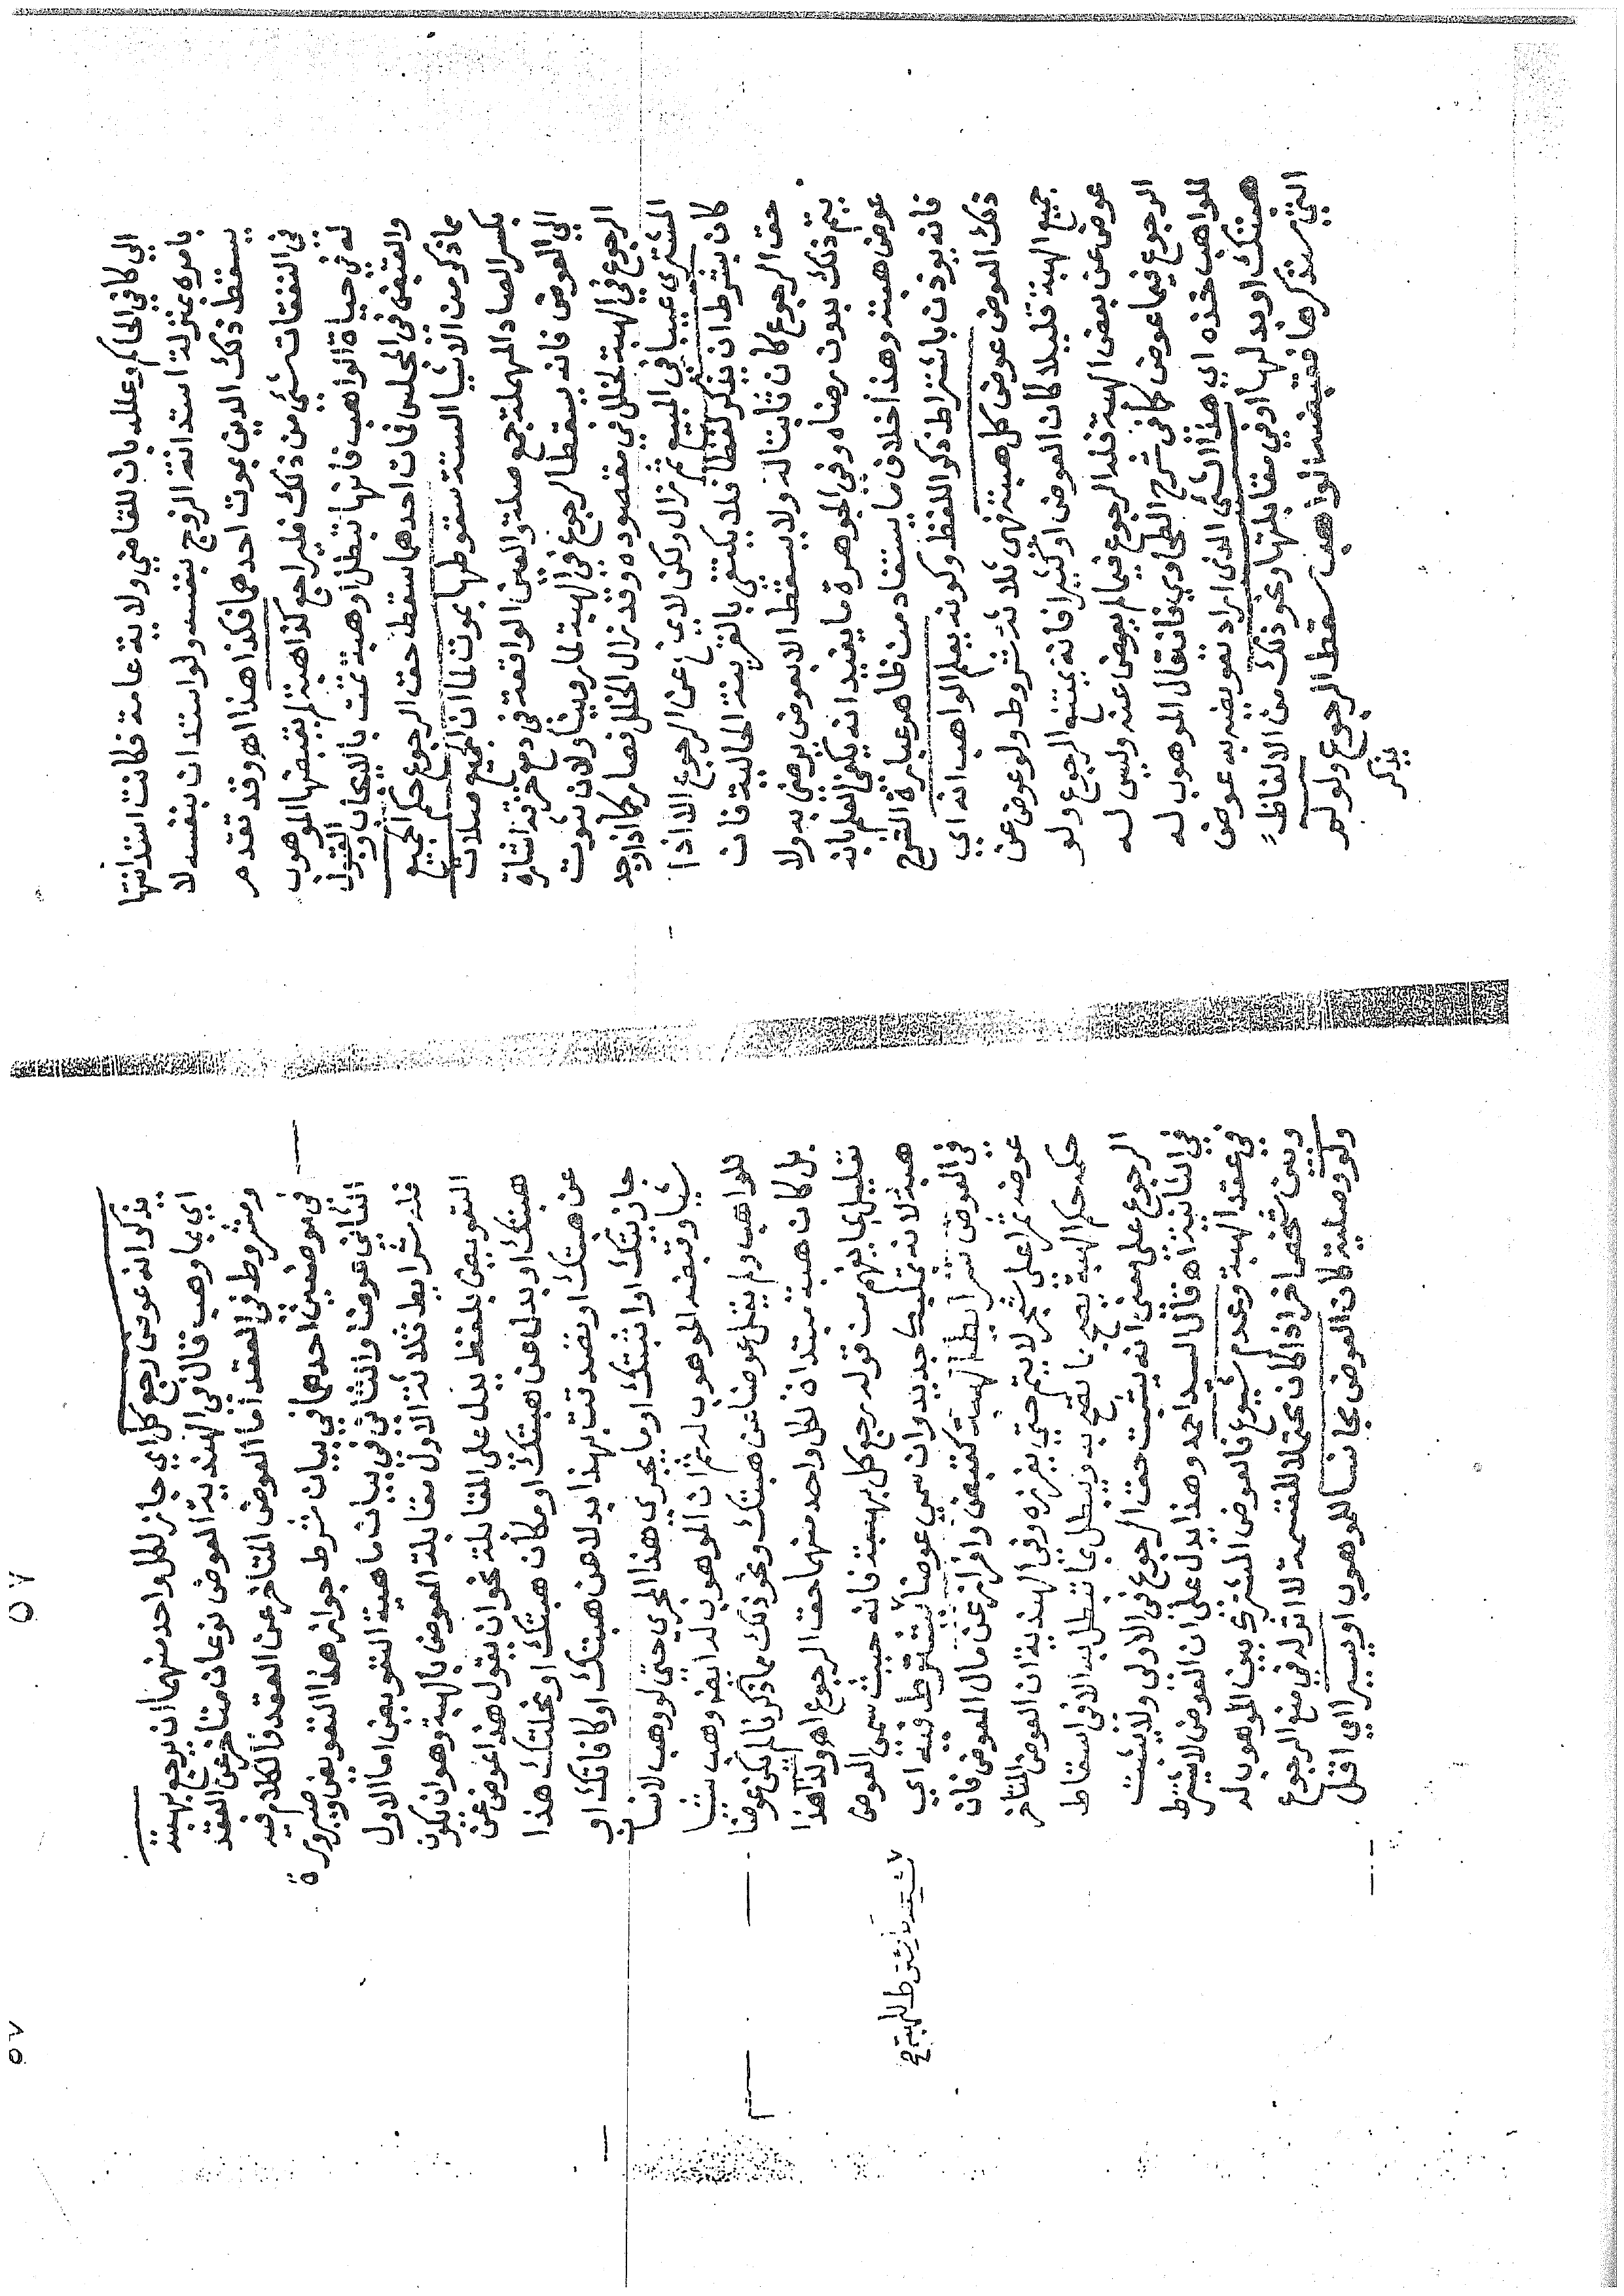 الي كافي الحاكم وعلله بان للقاضي ولاية عامة فكانت استدانتها
بامره بمنزلة استدانة الزوج بنفسه ولو استدان بنفسه لا
يسقط ذلك الدين بموت احدهما فكذا هذا اهـ وقد تقدم
في النفقات شئ من ذلك فليراجع كذا هبة لم يقبضها الموهوب
له في حياة الواهب فانها تبطل اوهبة تمت بالايجاب والقبول
والقبض في المجلس فمات احدهما سقط حق الرجوع حكم الجميع
مما ذكر من الاشيا الستة سقوطها بموت لما ان الجميع صلات
بكسر الصاد المهملة جمع صلة والعين الواقعة في دمع خزقه اشارة
الي العوض فانه يسقط الرجوع في الهبة لما روينا ولان ثبوت
الرجوع في الهبة لخلل في مقصوده وقد زال الخلل فصار كما اذا وجد
المشتري عيبا في المبيع ثم زال ولكن لا يمنع عن الرجوع الا اذا
كان بشرط ان يذكر لفظا فلا يكتفي بالقرينة الحالية فان
حق الرجوع كان ثابتا له ولا يسقط الا بعوض يرضي به ولا
يتم ذلك بدون رضاه وفي الجوهرة ما يفيد انه يكفي العلم بانه
عوض هبته وهذا خلاف ما يستفاد من ظاهر عبارة الشرح
فانه يوذن باشتراط ذكر اللفظ وكونه يعلم الواهب انه اي
ذلك العوض عوض كل هبته فهي ثلاثة شروط ولو عوض عن
جميع الهبة قليلا كان العوض او كثيرا فانه يمتنع الرجوع ولو
عوض عن بعض الهبة فله الرجوع فيما لم يعوض عنه وليس له
الرجوع فيما عوض كما في شرح الطحاوي فان قال الموهوب له
للواهب خذه اي هذا الشئ الذي اراد تعويضه به عوض
هبتك او بدلها او في مقابلتها ونحو ذلك من الالفاظ
التي سنذكرها فقبضه الواهب سقط الرجوع ولو لم
يذكر
٥٧
يذكر انه عوض رجع كل اي جاز لكل واحد منهما ان يرجع بهبته
اي بما وهب قال في الهندية العوض نوعان متاخر عن العقد
ومشروط في العقد اما العوض المتاخر عن العقد فالكلام فيه
في موضعين احدهما في بيان شرط جواز هذا التعويض وصيرورة
الثاني عوضا والثاني في بيان ماهية التعويض اما الاول
فله شرايط ثلاثة الاول مقابلة العوض بالهبة وهو ان يكون
التعويض بلفظ يدل على المقابلة نحو ان يقول هذا عوض عن
هبتك او بدل عن هبتك او مكان هبتك او نحلتك هذا
عن هبتك او تصدقت بهذا بدلا عن هبتك او كافاتك او
جازيتك او اثبتك او ما يجري هذا المجري حتى لو وهب لانسان
شيا وقبضه الموهوب له ثم ان الموهوب له ايضا وهب شيا
للواهب ولم يقل عوضا من هبتك ونحو ذلك مما ذكرنا لم يكن عوضا
بل كان هبة مبتداة لكل واحد منهما حق الرجوع اهـ ولذا هذا
تعليل لما يفهم من قوله رجع كل بهبته فانه حيث سمي العوض
هبة لانه تمليك جديد وان سمي عوضا يشترط فيه اي
في العوض شرايط الهبة كقبض وافراز عن مال المعوض فان
عوضه ثمرا على شجر لا يتم حتى يفرزه وفي الهندية ان العوض المتاخر
حكمه حكم الهبة يصح بما تصح به ويبطل بما تبطل به الا في اسقاط
الرجوع على معنى انه يثبت حق الرجوع في الاولى ولا يثبت
في الثانية اهـ قال السيد احمد وهذا يدل على ان العوض لا يشترط
في عقد الهبة وعدم شيوع فالعوض المشترك بين الموهوب له
وبين شخص اخر اذا كان محتملا للقسمة لا اثر له في منع الرجوع
ولو وصلية كان العوض مجانسا للموهوب او يسيرا اي اقل
٥٧